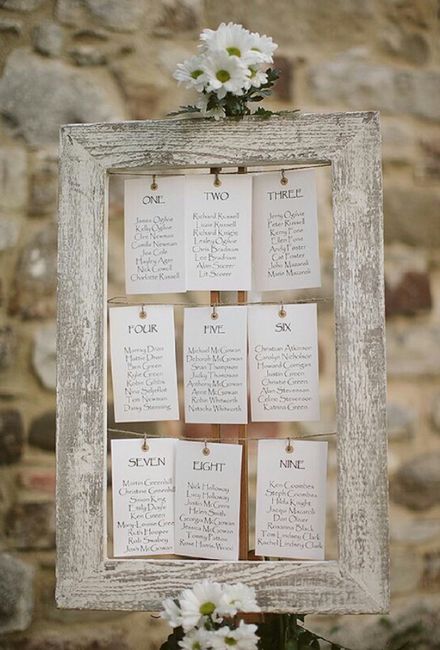 ONE
James Ogilvie
Kelly Ogilvie
Clint Newman
Camilla Newman
Joe Cole
Hayley Agar
Nick Cowell
Charlotte Farrell
TWO
Richard Russell
Louise Russell
Richard Knight
Lesley Ogilvie
Chris Bradman
Lee Bradman
Alan Stoter
Lit Stoter
THREE
Jerry Ogilvie
Peter Russell
Kerry Fone
Ellen Fone
Andy Foster
Cat Foster
John Mazarak
Maria Mazarak
FOUR
Murray Dran
Hattie Dran
Ben Green
Kylie Green
Robin Gibbs
Nina
Tom Newman
Daisy Stenning
FIVE
Michael McGowan
Deborah McGowan
Sean Thompson
Judley Thompson
Anthony McGowan
Anne McGowan
Robin Whitworth
Natacha Whitworth
SIX
Christian Atkinson
Carolyn Nicholson
Howard Corrigan
Justin Green
Christie Green
Alan Stevenson
Celine Stevenson
Katrina Green
SEVEN
Martin Greenhill
Christine Greenhill
Simon King
Emily Davies
Ken Green
Mary-Louise Green
Ruth Hooper
Rob Swabey
Joss McGowan
EIGHT
Nick Holloway
Lucy Holloway
Justin McGowan
Helen Smith
Georgia McGowan
Jessica McGowan
Tommy Patten
Rosie Harris McGowan
NINE
Ken Coombes
Steph Coombes
Hilda Knight
Jacqui Macaroll
Dan Oliver
Roxanna Black
Tom Lindsey Clark
Rachel Lindsey Clark